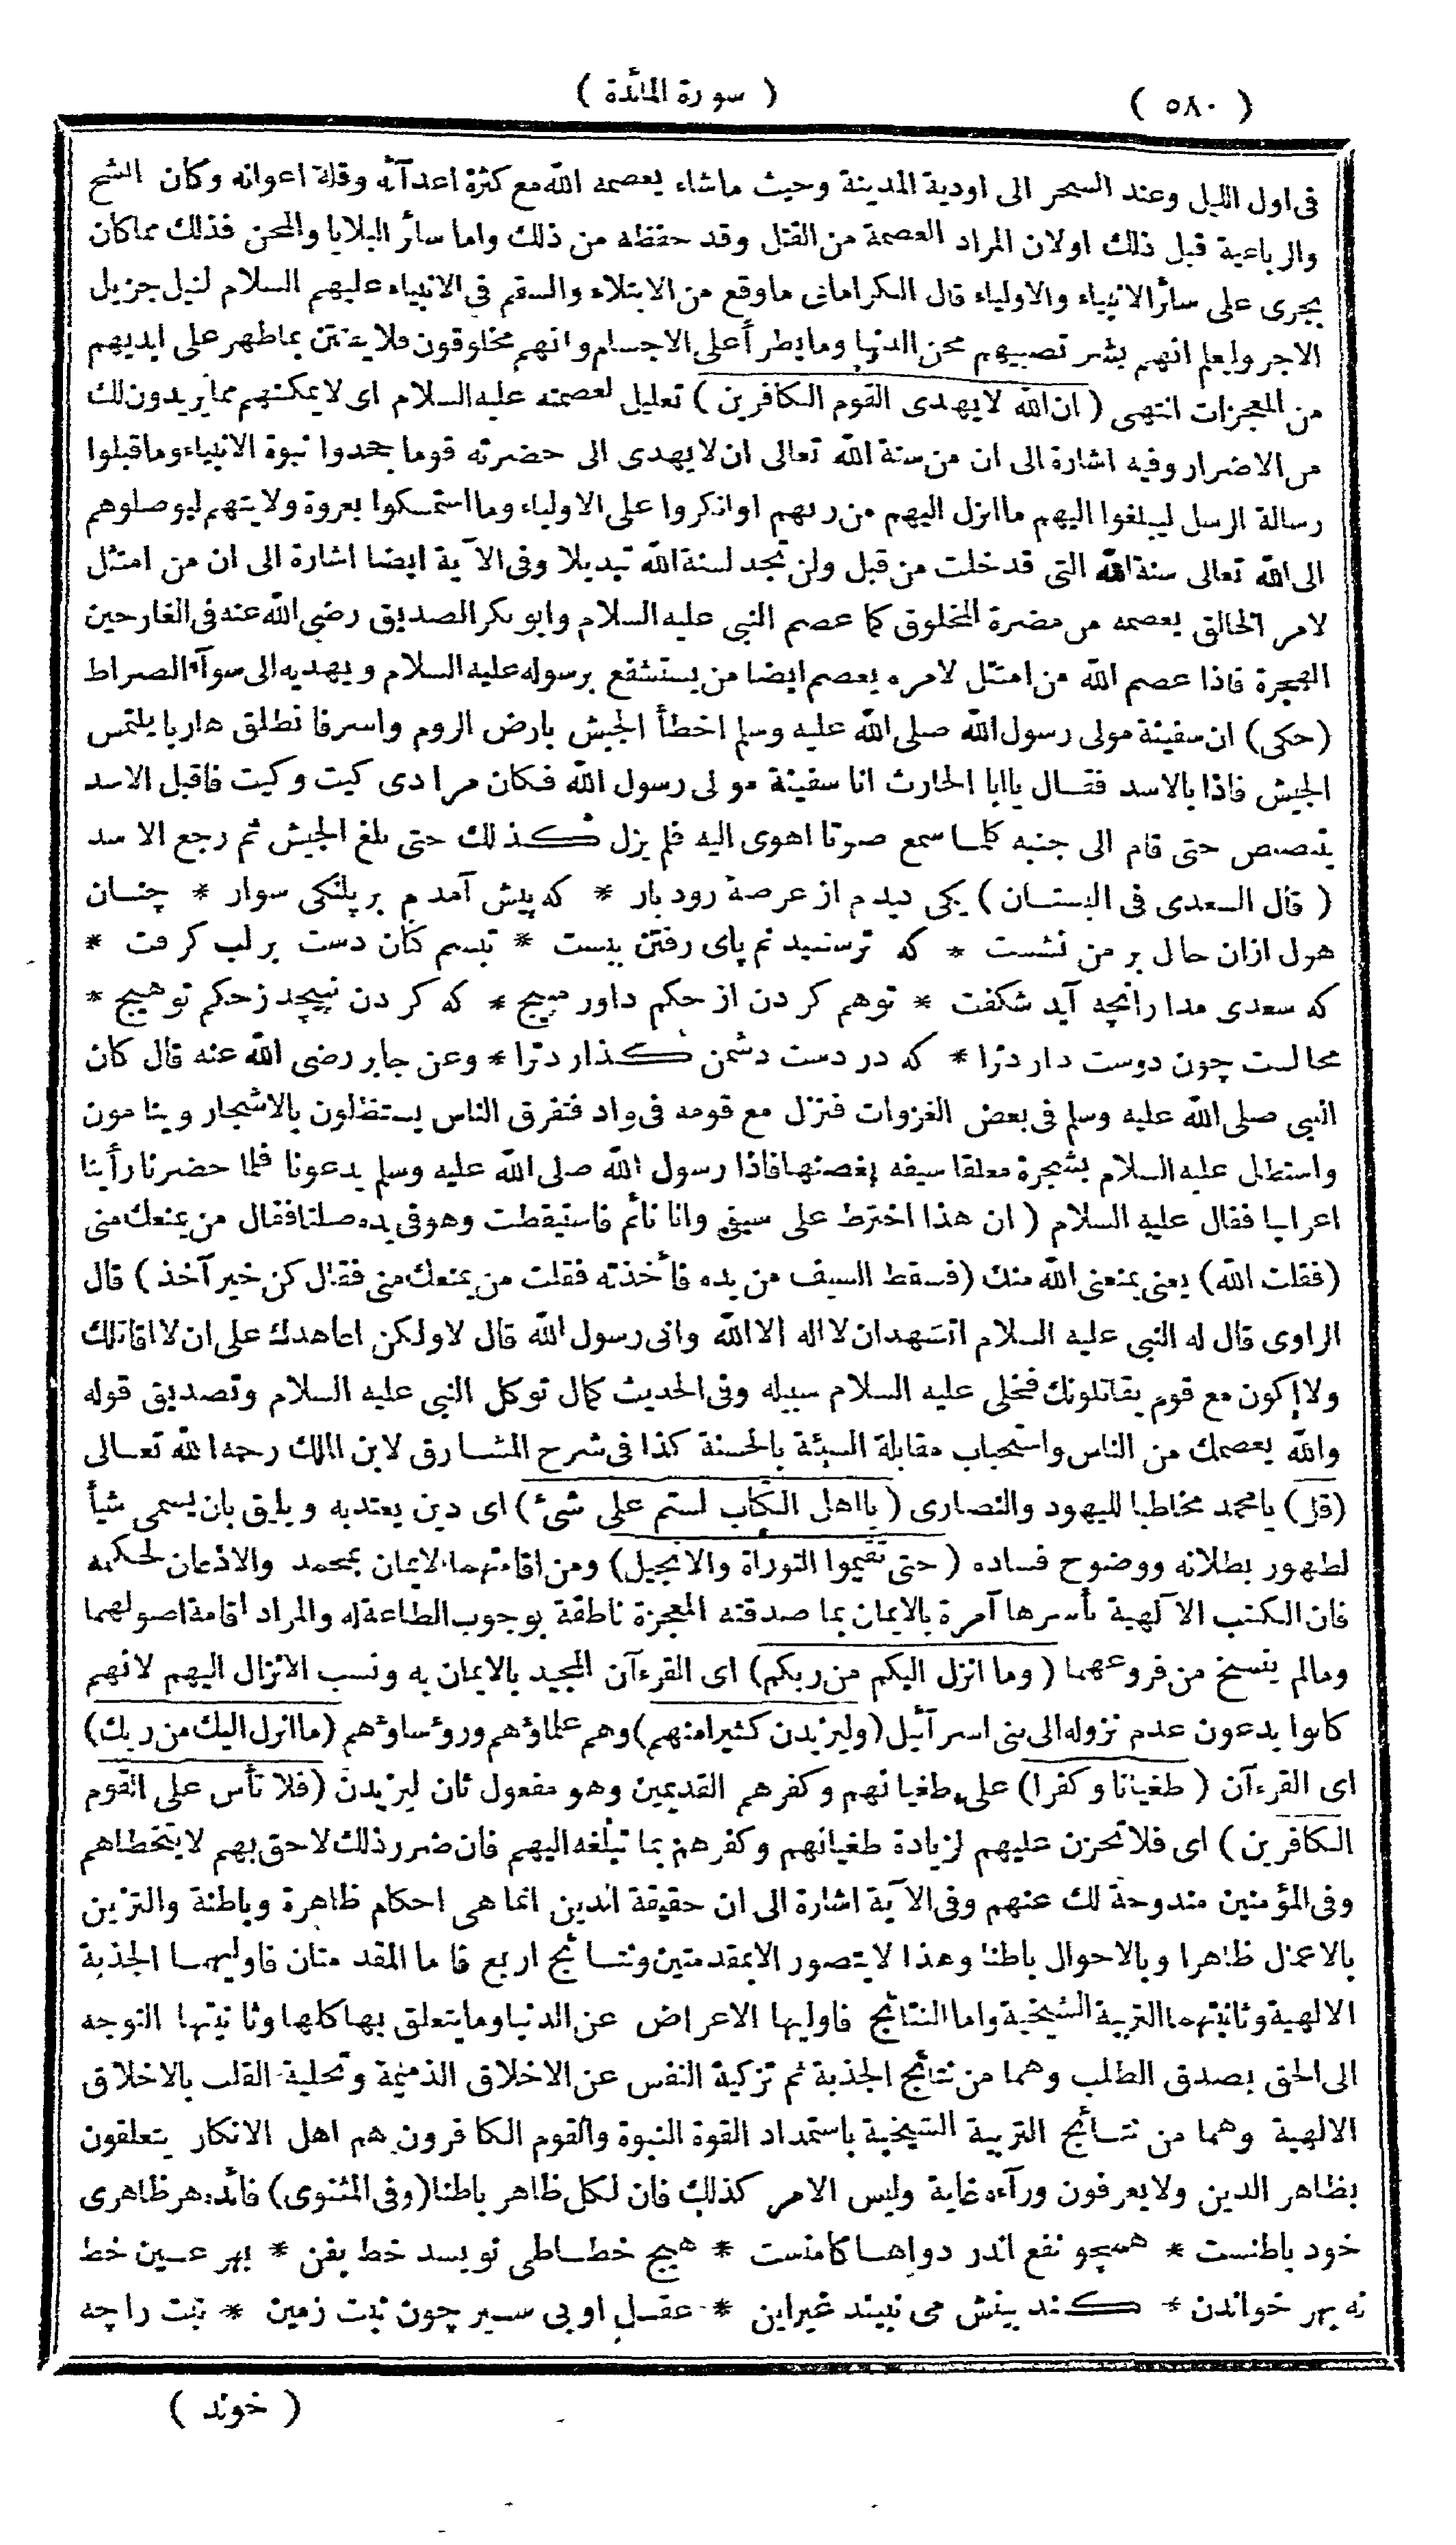 ( ٥٨٠ )
( سورة المائدة )
فى اول الليل وعند السحر الى اودية المدينة وحيث ماشاء يعصمه الله مع كثرة اعدآئه وقلة اعوانه وكان الشج
والرباعية قبل ذلك اولان المراد العصمة من القتل وقد حفظه من ذلك واما سائر البلايا والمحن فذلك مما كان
يجرى على سائر الانبياء والاولياء قال الكرامانى ماوقع من الابتلاء والسقم فى الانبياء عليهم السلام لنيل جزيل
الاجر وليعلم انهم بشر تصيبهم محن الدنيا ومايطرأ على الاجسام وانهم مخلوقون فلايفتتن بماظهر على ايديهم
من المعجزات انتهى ( ان الله لايهدى القوم الكافرين ) تعليل لعصمته عليه السلام اى لايمكنهم مما يريدون لك
من الاضرار وفيه اشارة الى ان من سنة الله تعالى ان لايهدى الى حضرته قوما جحدوا نبوة الانبياء وماقبلوا
رسالة الرسل ليبلغوا اليهم ماانزل اليهم من ربهم اوانكروا على الاولياء ومااستمسكوا بعروة ولايتهم ليوصلوهم
الى الله تعالى سنة الله التى قدخلت من قبل ولن تجد لسنة الله تبديلا وفى الآية ايضا اشارة الى ان من امتثل
لامر الخالق يعصمه من مضرة المخلوق كما عصم النبى عليه السلام وابوبكر الصديق رضى الله عنه فى الغار حين
الهجرة فاذا عصم الله من امتثل لامره يعصم ايضا من يستشفع برسوله عليه السلام ويهديه الى سوآء الصراط
(حكى) ان سفينة مولى رسول الله صلى الله عليه وسلم اخطأ الجيش بارض الروم واسر فانطلق هاربا يلتمس
الجيش فاذا بالاسد فقال ياابا الحارث انا سفينة مولى رسول الله فكان مرادى كيت وكيت فاقبل الاسد
يتبصبص حتى قام الى جنبه كلما سمع صوتا اهوى اليه فلم يزل كذلك حتى بلغ الجيش ثم رجع الاسد
( قال السعدى فى البستان ) يكى ديدم از عرصهٔ رودبار * كه پيش آمدم بر پلنكى سوار * چنان
هول ازان حال بر من نشست * كه ترسنيدنم پاى رفتن ببست * تبسم كنان دست برلب كرفت *
كه سعدى مدا رآنچه آيد شكفت * توهم كردن از حكم داور مپيچ * كه كردن نپيچد زحكم توهيچ *
محالست چون دوست دارد ترا * كه در دست دشمن كذارد ترا * وعن جابر رضى الله عنه قال كان
النبى صلى الله عليه وسلم فى بعض الغزوات فنزل مع قومه فى واد فتفرق الناس يستظلون بالاشجار وينامون
واستظل عليه السلام بشجرة معلقا سيفه بغصنها فاذا رسول الله صلى الله عليه وسلم يدعونا فلما حضرنا رأينا
اعرابيا فقال عليه السلام ( ان هذا اخترط على سيفى وانا نائم فاستيقظت وهوفى يده صلتا فقال من يمنعك منى
(فقلت الله) يعنى يمنعنى الله منك (فسقط السيف من يده فأخذته فقلت من يمنعك منى فقال كن خير آخذ ) قال
الراوى قال له النبى عليه السلام اتشهد ان لااله الاالله وانى رسول الله قال لاولكن اعاهدك على ان لااقاتلك
ولااكون مع قوم يقاتلونك فخلى عليه السلام سبيله وفى الحديث كمال توكل النبى عليه السلام وتصديق قوله
والله يعصمك من الناس واستحباب مقابلة السيئة بالحسنة كذا فى شرح المشارق لابن الملك رحمه الله تعالى
(قل) يامحمد مخاطبا لليهود والنصارى ( يااهل الكتاب لستم على شئ ) اى دين يعتدبه ويليق بان يسمى شيأ
لظهور بطلانه ووضوح فساده ( حتى تقيموا التوراة والانجيل ) ومن اقامتهما الايمان بمحمد والاذعان لحكمه
فان الكتب الآلهية بأسرها آمرة بالايمان بما صدقته المعجزة ناطقة بوجوب الطاعة له والمراد اقامة اصولهما
ومالم ينسخ من فروعهما ( وما انزل اليكم من ربكم) اى القرءآن المجيد بالايمان به ونسب الانزال اليهم لانهم
كانوا يدعون عدم نزوله الى بنى اسرآئيل (وليزيدن كثيرا منهم) وهم علماؤهم ورؤساؤهم (ماانزل اليك من ربك)
اى القرءآن ( طغيانا وكفرا) على طغيانهم وكفرهم القديمين وهو مفعول ثان ليزيدن (فلا تأس على القوم
الكافرين ) اى فلاتحزن عليهم لزيادة طغيانهم وكفرهم بما تبلغه اليهم فان ضرر ذلك لاحق بهم لايتخطاهم
وفى المؤمنين مندوحة لك عنهم وفى الآية اشارة الى ان حقيقة الدين انما هى احكام ظاهرة وباطنة والتزين
بالاعمال ظاهرا وبالاحوال باطنا وهذا لايتصور الابمقدمتين ونتائج اربع فاما المقدمتان فاوليهما الجذبة
الالهية وثانيتهما التربية الشيخية واما النتائج فاوليها الاعراض عن الدنيا ومايتعلق بها كلها وثانيتها التوجه
الى الحق بصدق الطلب وهما من نتائج الجذبة ثم تزكية النفس عن الاخلاق الذميمة وتحلية القلب بالاخلاق
الالهية وهما من نتائج التربية الشيخية باستمداد القوة النبوة والقوم الكافرون هم اهل الانكار يتعلقون
بظاهر الدين ولايعرفون ورآءه غاية وليس الامر كذلك فان لكل ظاهر باطنا (وفى المثنوى) فائدۀ هر ظاهرى
خود باطنست * همچو نفع اندر دواها كامنست * هيچ خطاطى نويسد خط بفن * بهر عين خط
نه بهر خواندن * كند بينش مى نبيند غيراين * عقل اوبى سير چون نبت زمين * نبت را چه
( خوند )